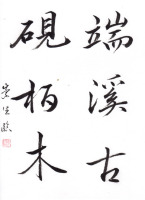 端溪古
硯柏木